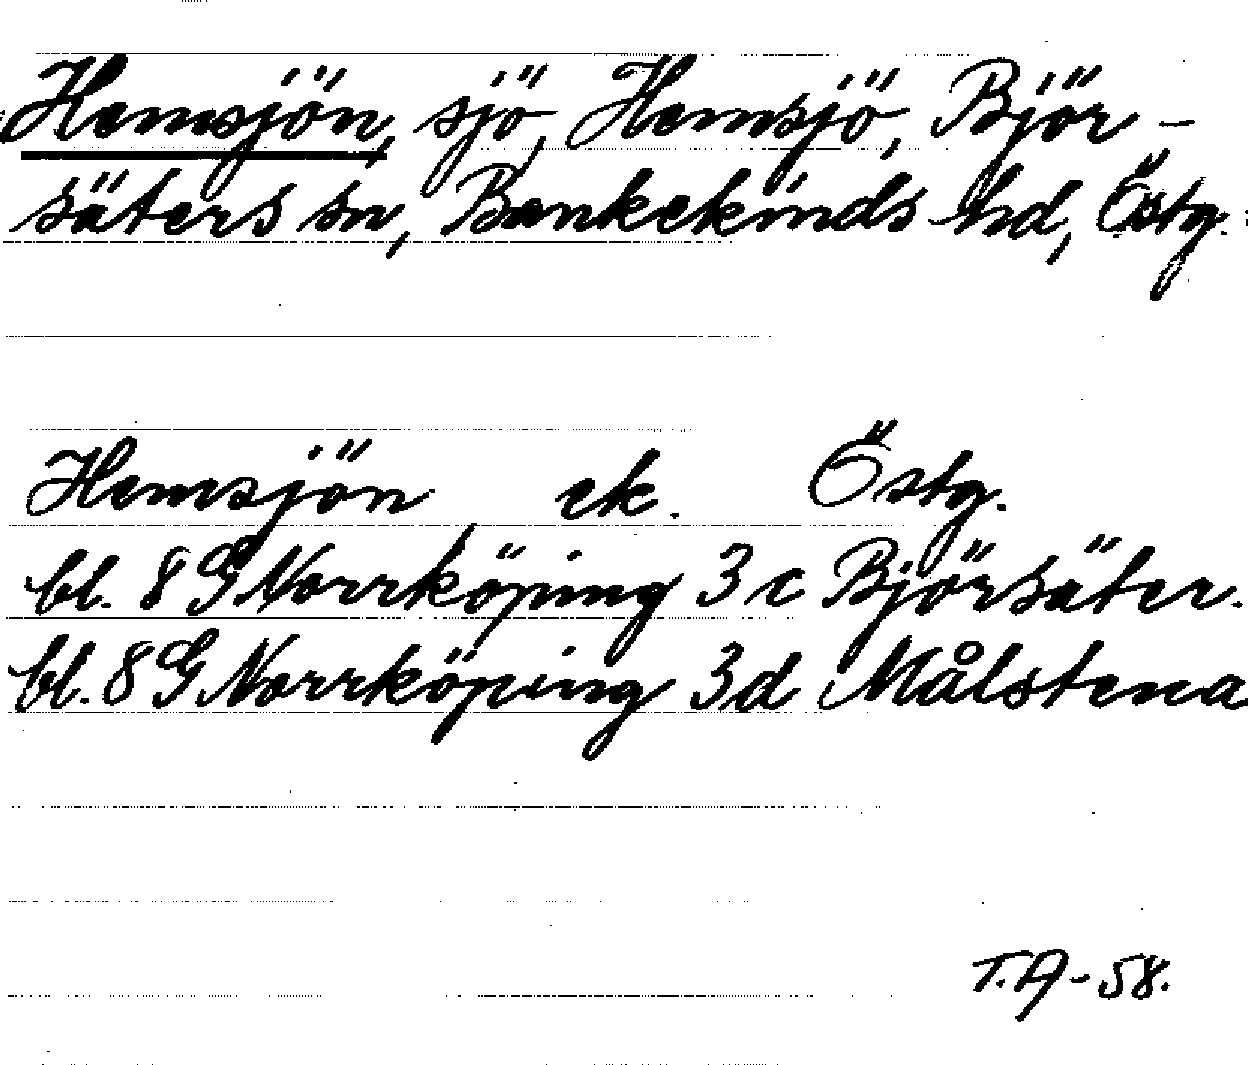 Hemsjön, sjö, Hemsjö, Björ-
säters sn, Bankekinds hd, Östg.
Hemsjön ek. Östg.
bl. 8 G Norrköping 3 c Björsäter.
bl. 8 G Norrköping 3d Målstena
T.A-58.